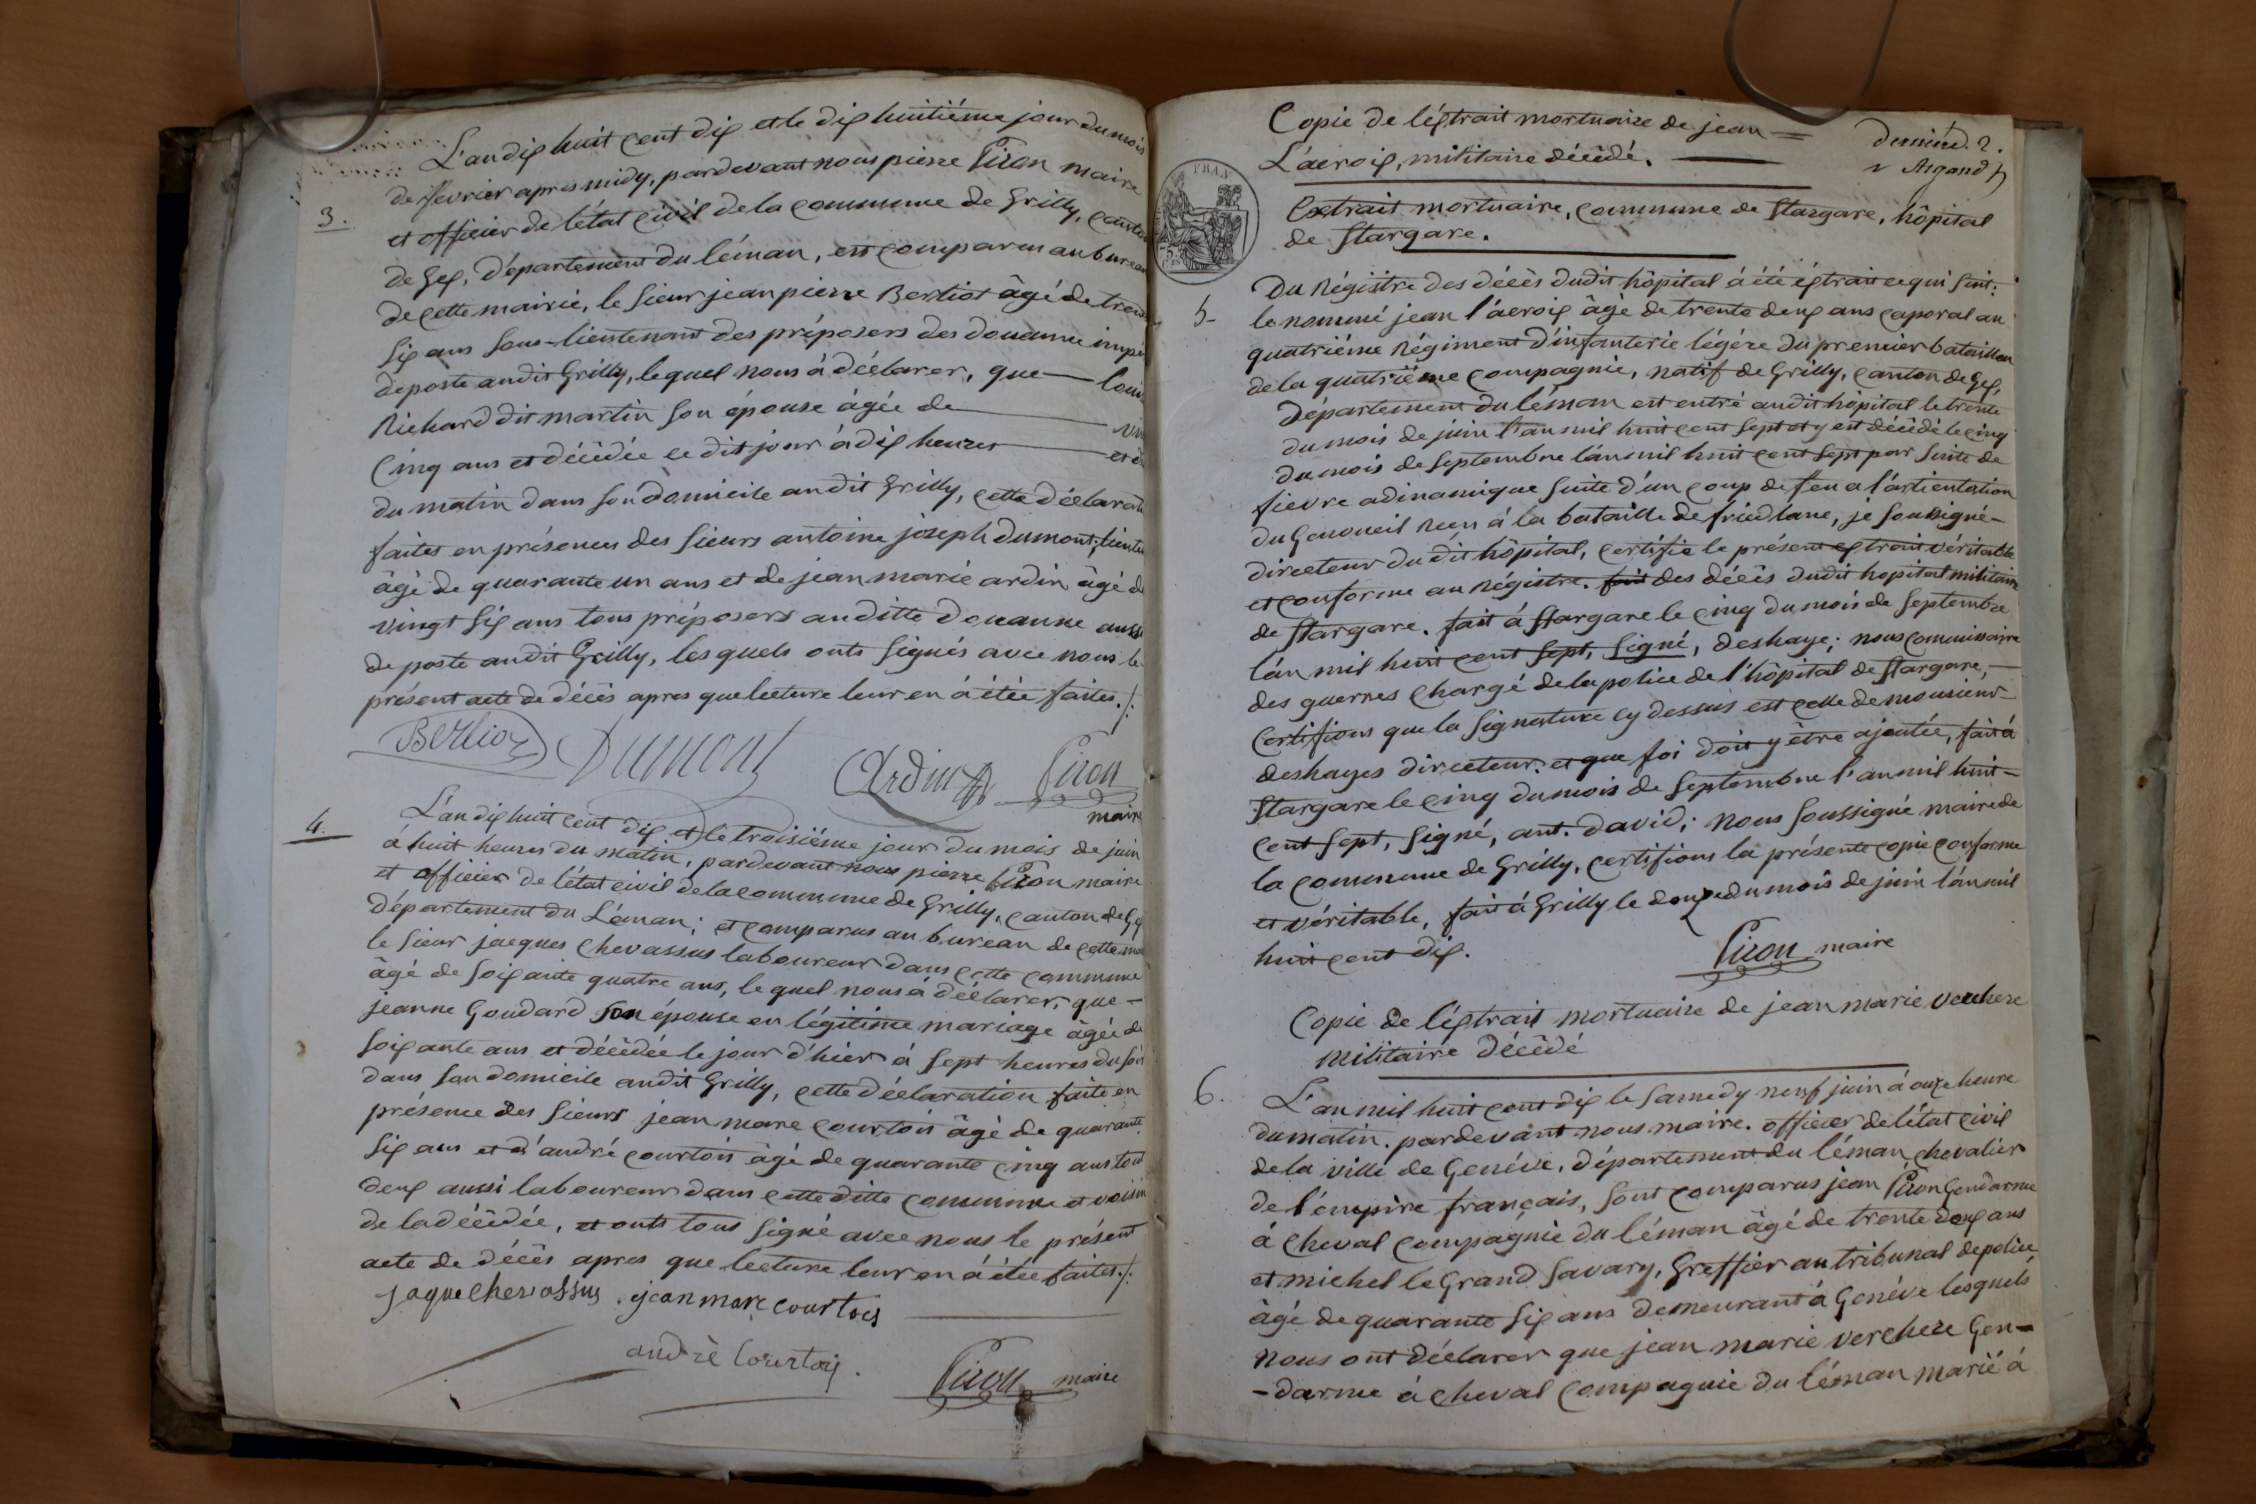 L'an dix huit cent dix et le dix huitiéme jour du mois
de fevrier apres midy, pardevant nous pierre Piron maire
3.
et officier de l'état civil de la commune de Grilly, canton
de Gex, département du léman, est comparus au bureau
de cette mairie, le sieur jean pierre Berlioz âgé de trente
six ans sous-lieutenant des préposers des douanne
de poste audit Grilly, lequel nous à déclarer, que
Richard dit martin son épouse âgée de
cinq ans et décédée ce dit jour à dix heures
du matin dans son domicile audit Grilly, cette déclaration
faites en présences des sieurs antoine joseph dumont,
âgé de quarante un ans et de jean marie ardin âgé de
vingt six ans tous préposers auditte douanne aussi
de poste audit Grilly, les quels onts signés avec nous le
présent acte de décès apres que lecture leur en à étée faites./.
Berlioz Dumont Ardin Piron
maire
4.
L'an dix huit cent dix et le troisiéme jour du mois de juin
à huit heures du matin, pardevant nous pierre Piron maire
et officier de l'état civil de la commune de Grilly, canton de Gex
département du Léman; et comparus au bureau de cette
le sieur jacques chevassus laboureur dans cette commune
âgé de soixante quatre ans, lequel nous à déclarer, que -
jeanne Goudard son épouse en légitime mariage âgée de
soixante ans et décédée le jour d'hier à sept heures du soir
dans son domicile audit Grilly, cette déclaration faite en
présence des sieurs jean marc courtois âgé de quarante
six ans et d'andré courtois âgé de quarante cinq ans tous
deux aussi laboureur dans cette ditte commune et voisin
de la décédée, et onts tous signé avec nous le présent
acte de décès apres que lecture leur en à étée faites./.
jaque chevassus . jean marc courtois
andrè Courtois .
Piron maire
Copie de l'éxtrait mortuaire de jean =
L'acroix, militaire décédé.
FRAN
Extrait mortuaire, commune de Stargare, hôpital
de Stargare.
Du Régistre des décès dudit hôpital à été éxtrait ce qui suit:
5-
le nommé jean l'acroix âgé de trente deux ans caporal au
quatriéme Régiment d'infanterie légére du premier bataillon
de la quatriéme compagnie, natif de Grilly, canton de Gex,
département du léman est entré audit hôpital le trente
du mois de juin l'an mil huit cent sept et y est décédé le cinq
du mois de septembre l'an mil huit cent sept par suite de
fievre adinamique suite d'un coup de feu a l'articulation
du Genoueil Recu à la bataille de friedlane, je soussigné -
directeur dudit hôpital, certifie le présent extrait véritable
et conforme au Régistre. fait des décès dudit hopital militaire
de Stargare. fait à Stargare le cinq du mois de septembre
l'an mil huit cent sept, signé, deshaye; nous commissaire
des guerres chargé de la police de l'hôpital de Stargare, -
certifions que la signature cy dessus est celle de monsieur
deshayes directeur. et que foi doit y être ajoutée, fait à
Stargare le cinq du mois de septembre l'an mil huit -
cent sept, signé, ant. david; nous soussigné maire de
la commune de Grilly, certifions la présente copie conforme
et véritable, fait à Grilly le douze du mois de juin l'an mil
huit cent dix.
Piron maire
Copie de l'éxtrait mortuaire de jean marie verchere
militaire décédé
6.
L'an mil huit cent dix le samedy neuf juin à onze heure
du matin. pardevant nous maire. officier de l'état civil
de la ville de Genéve, département du léman, chevalier
de l'émpire français, sont comparus jean Piron Gendarme
à cheval compagnie du léman âgé de trente deux ans
et michel le Grand savary, Greffier au tribunal de police
âgé de quarante six ans demeurant à Genéve lesquels
nous ont déclarer que jean marie verchere Gen-
-darme à cheval compagnie du léman marié à